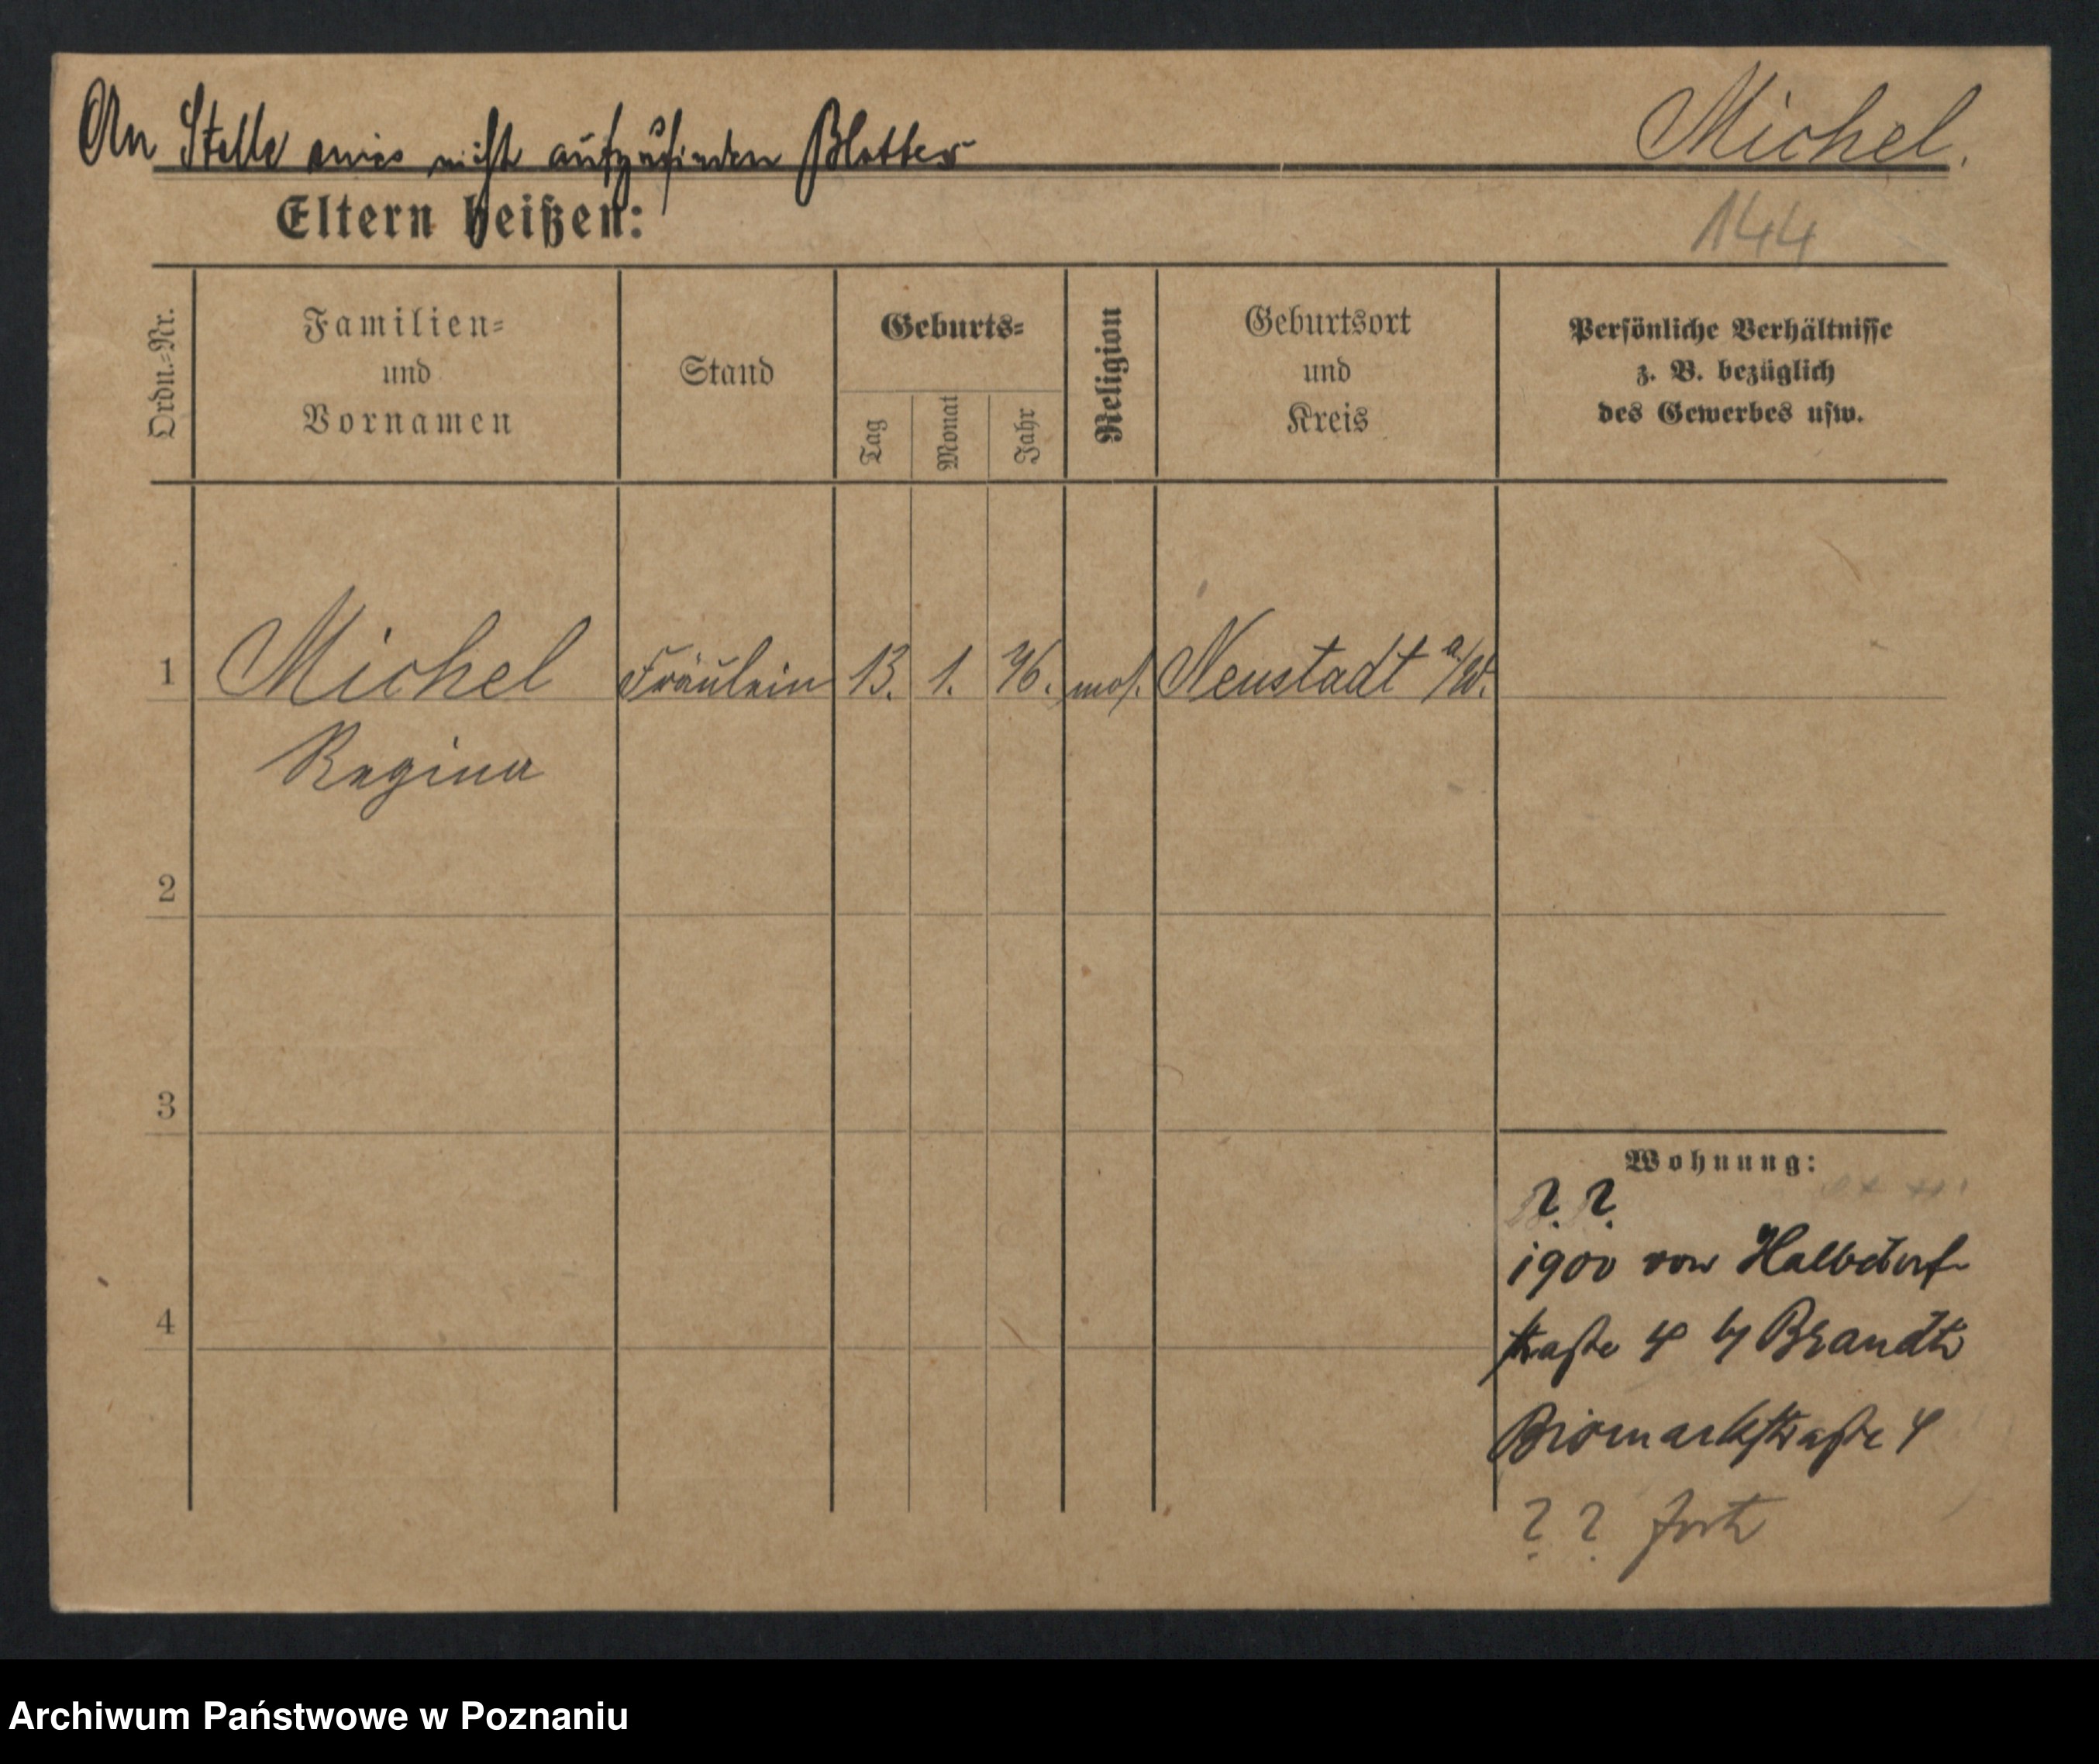 An Stelle eines nicht aufzufinden Blattes
Michel.
144
Eltern heißen:
Ordn.-Nr.
Familien-
und
Vornamen
Stand
Geburts-
Tag
Monat
Jahr
Religion
Geburtsort
und
Kreis
Persönliche Verhältnisse
z. B. bezüglich
des Gewerbes usw.
1 Michel Fräulein 13. 1. 76. mos. Neustadt a/W.
Regina
2
3
4
Wohnung:
?. ?.
1900 von Halbdorf-
straße 4 by Brandt
Bismarckstraße 4
? ? fort
Archiwum Państwowe w Poznaniu